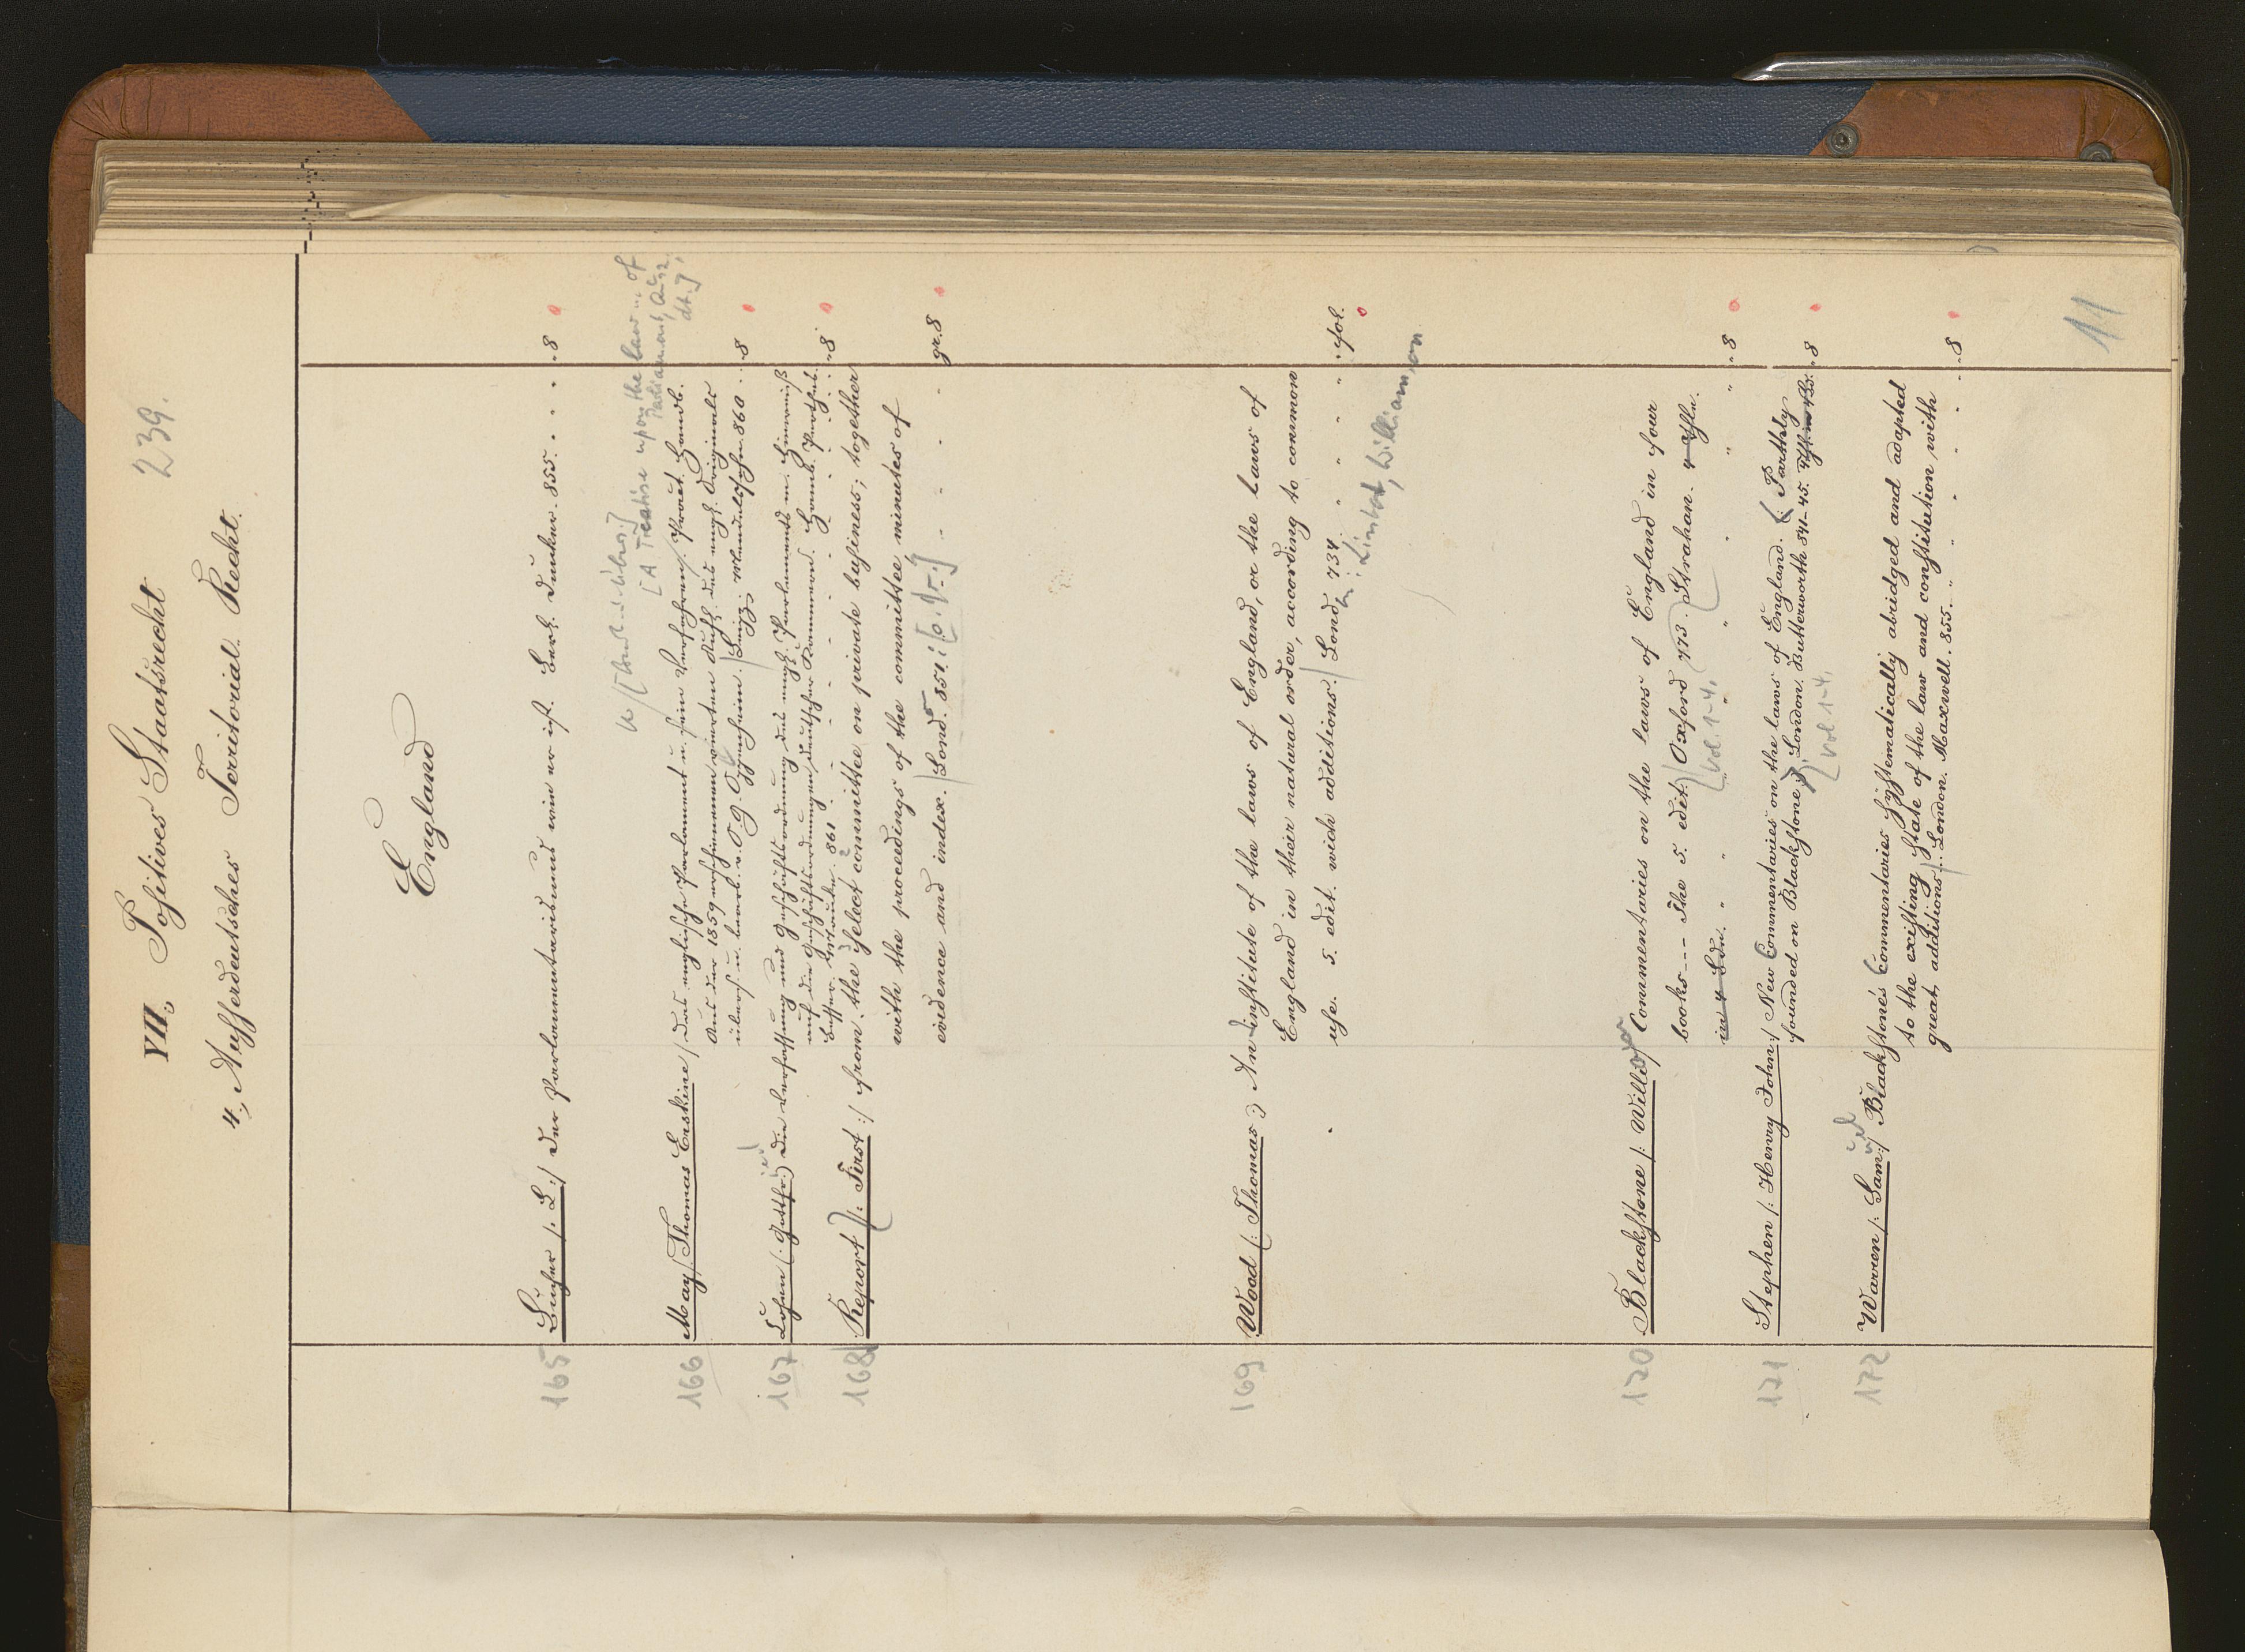 VII. Positives Staatsrecht
239.
4., Ausserdeutsches Territorial-Recht.
England
165 Bucher /: L :/ Der Parlamentarismus wie er ist. Berl. Duncker. 855. . . . 8
[A Treatise upon the law ... of
Parliament,
dt.]
166 May /: Thomas Erskine / Das englische Parlament u. sein Verfahren / Pract. Handb.
Aus der 1859 erschienenen vierten Aufl. des engl. Originals
übers. u. bearb. v. O. G. Oppenheim. Leipz. Mendelssohn. 860 . . 8
167 Die Verfassung und Geschäftsordnung des engl. Parlaments m. Hinweis
auf die Geschäftsordnungen deutscher Kammern. Hamb. Perthes.
Besser, Mauke. 861 . . . 8
168 Report /: First :/ from the Select committee on private business; together
with the proceedings of the committee, minutes of
evidence and index. Lond. 851. [o. V.] - - - - gr. 8
169 Wood /: Thomas :/ An institute of the laws of England, or the laws of
England in their natural order, according to common
use. 5. edit. with additions. Lond. 734. " " " " fol.
Lintot, William, on
170 Blackstone /: William / Commentaries on the laws of England in four
books --- The 5. edit. Oxford 773. Strahan. 4 Thle.
in 4 Bdn. " " " " " " " 8
[vol. 1-4.
171 Stephen /: Henry John :/ New Commentaries on the laws of England. (: Parthly
founded on Blackstone :) London. Butterworth 841-45. 8
[vol 1-4.
172 Warren /: Samuel :/ Blackstone's Commentaries systematically abridged and adapted
to the existing state of the law and constitution, with
great additions. London. Maxwell. 855. " " - - - 8
11